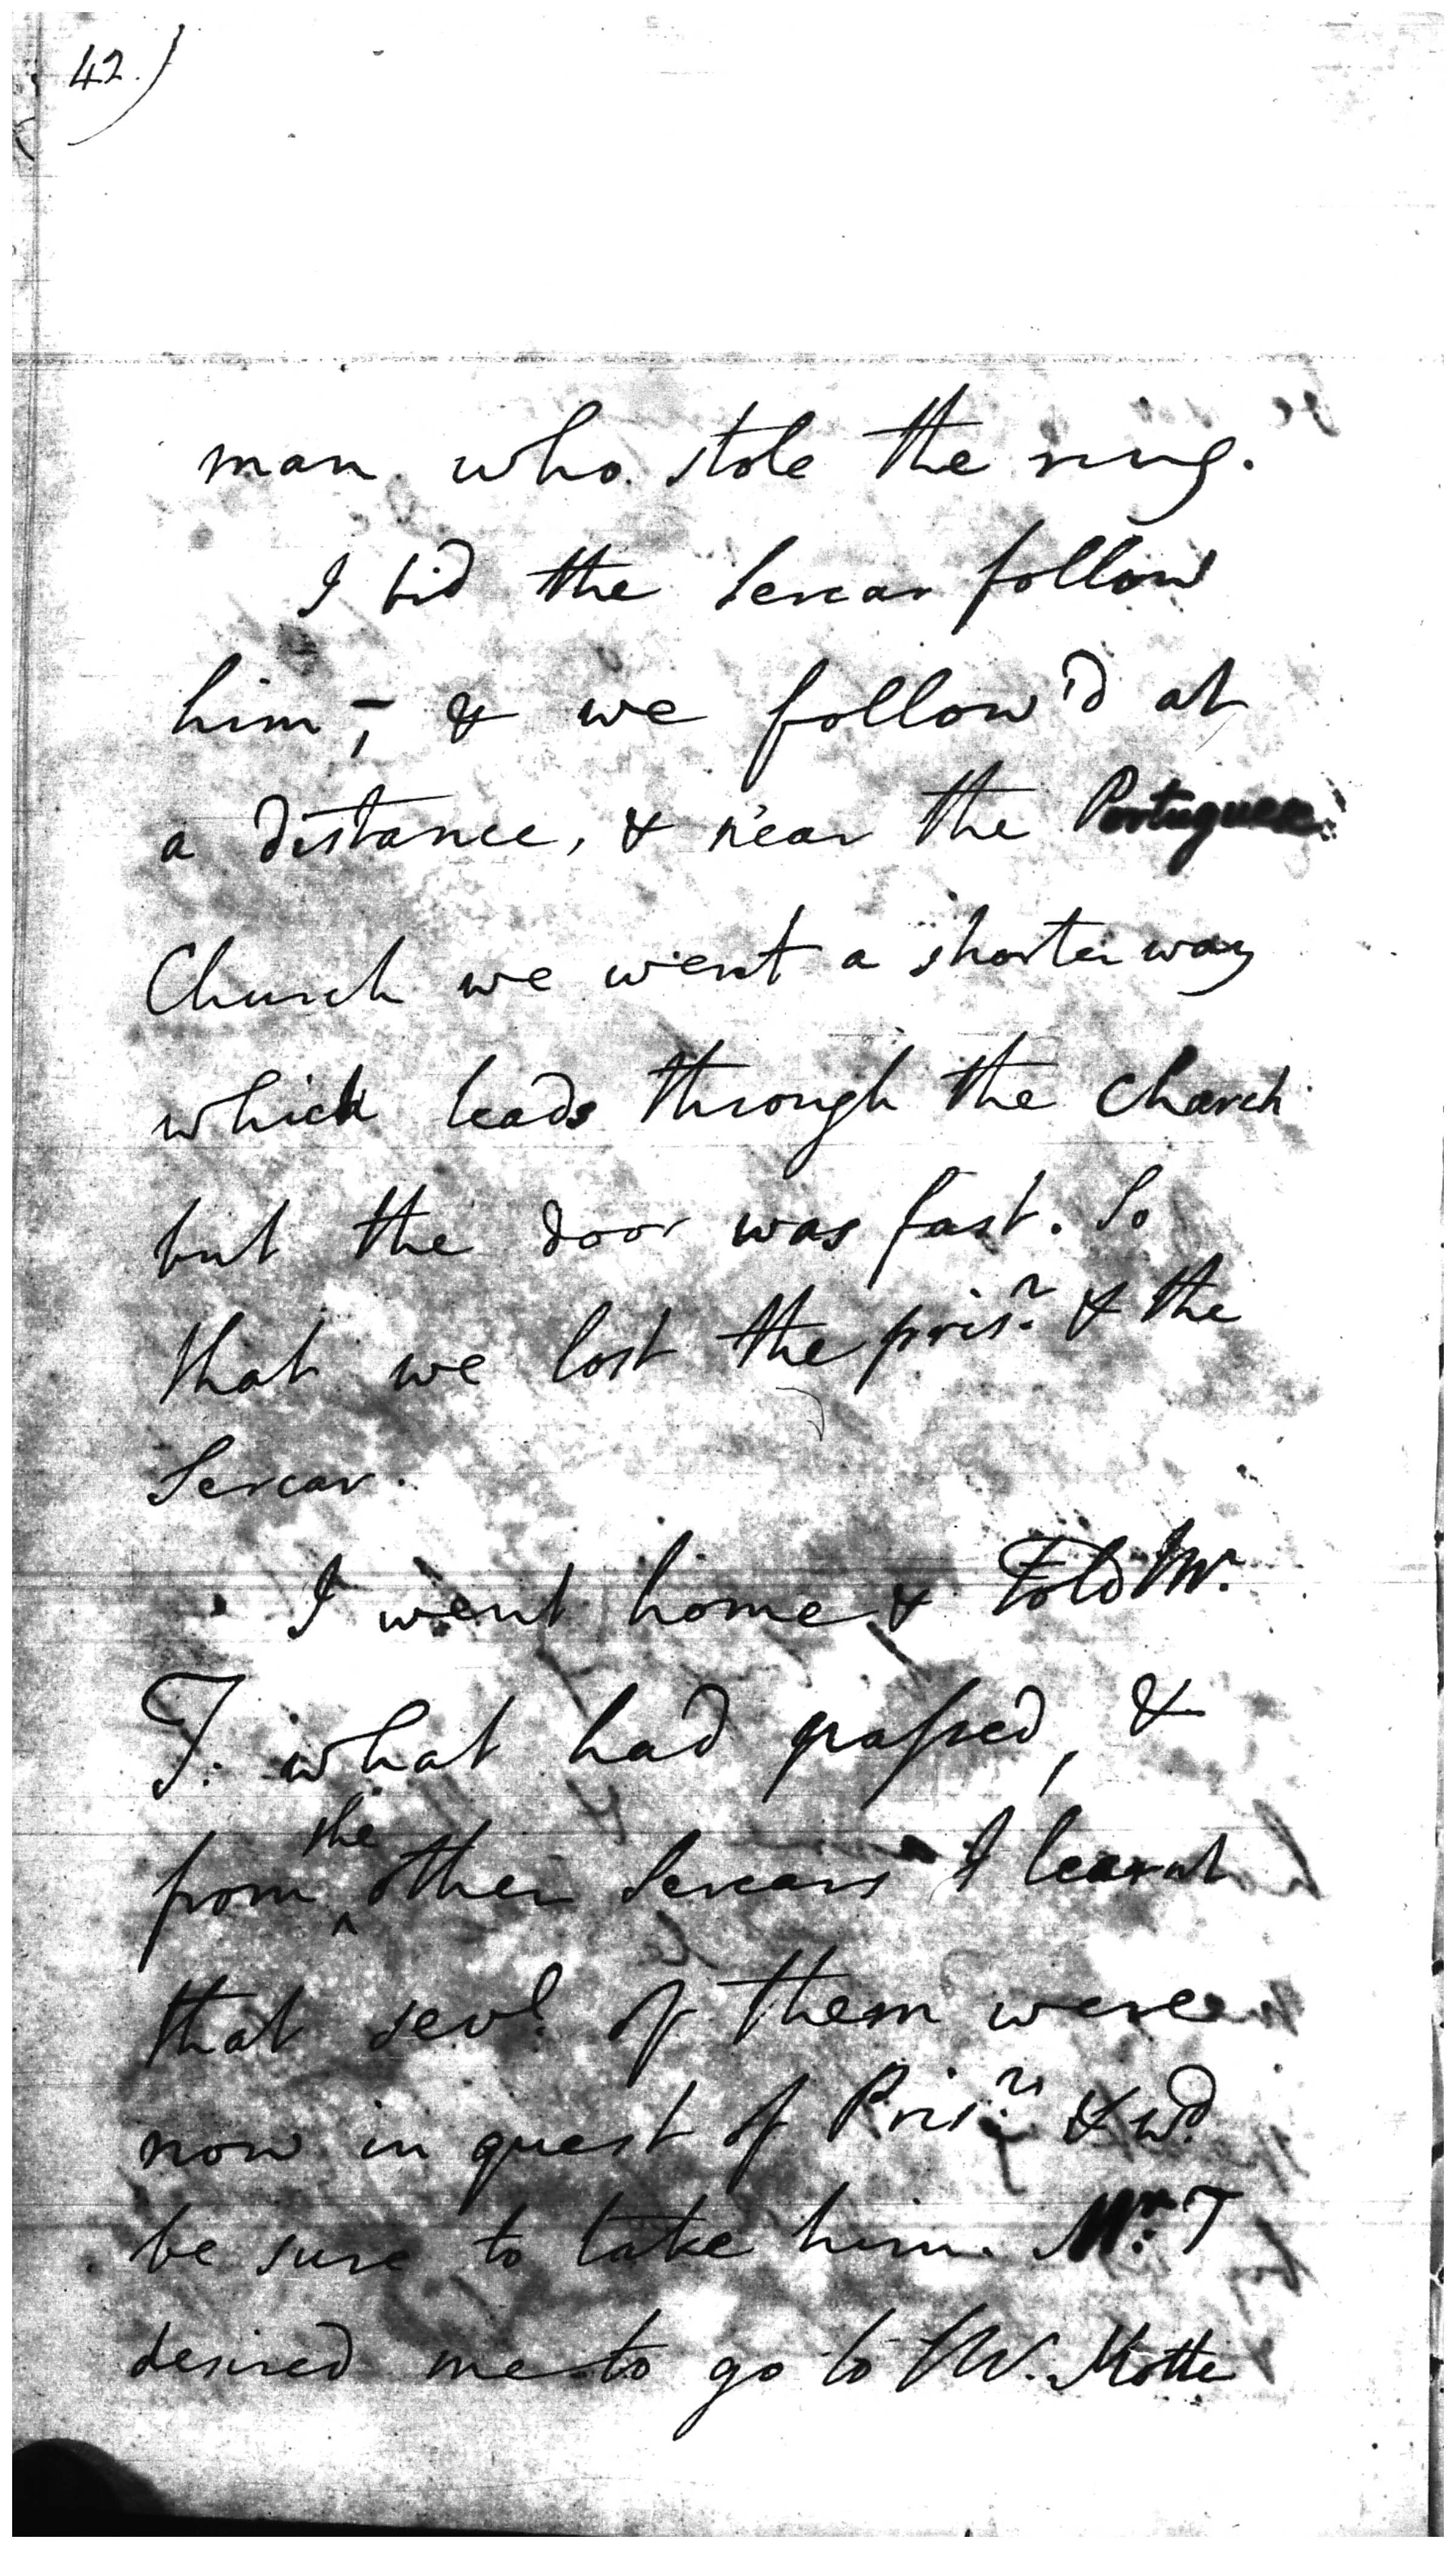 42.)
man who stole the ring.
I bid the Sercar follow
him, & we follow'd at
a distance, & near the Portuguese
Church we went a shorter way
which leads through the Church
but the door was fast. So
that we lost the prisr. & the
Sercar.
I went home & told Mr.
T. what had passed, &
from the other Sercars I learnt
that sevl. of them were
now in quest of Prisr. & wd.
be sure to take him. Mr. T
desired me to go to Mr. Motte